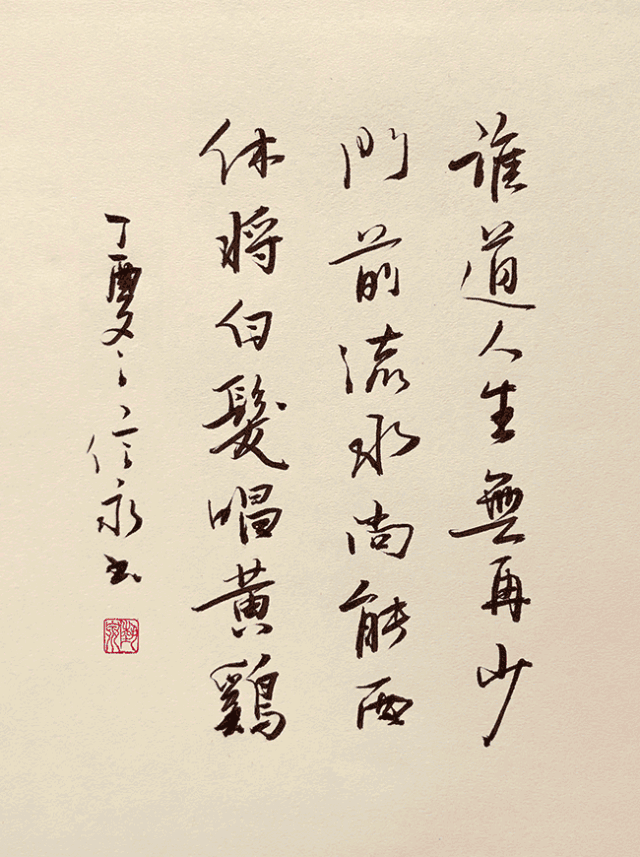 誰道人生無再少
門前流水尚能西
休將白髮唱黃鷄
丁酉夏之信永書